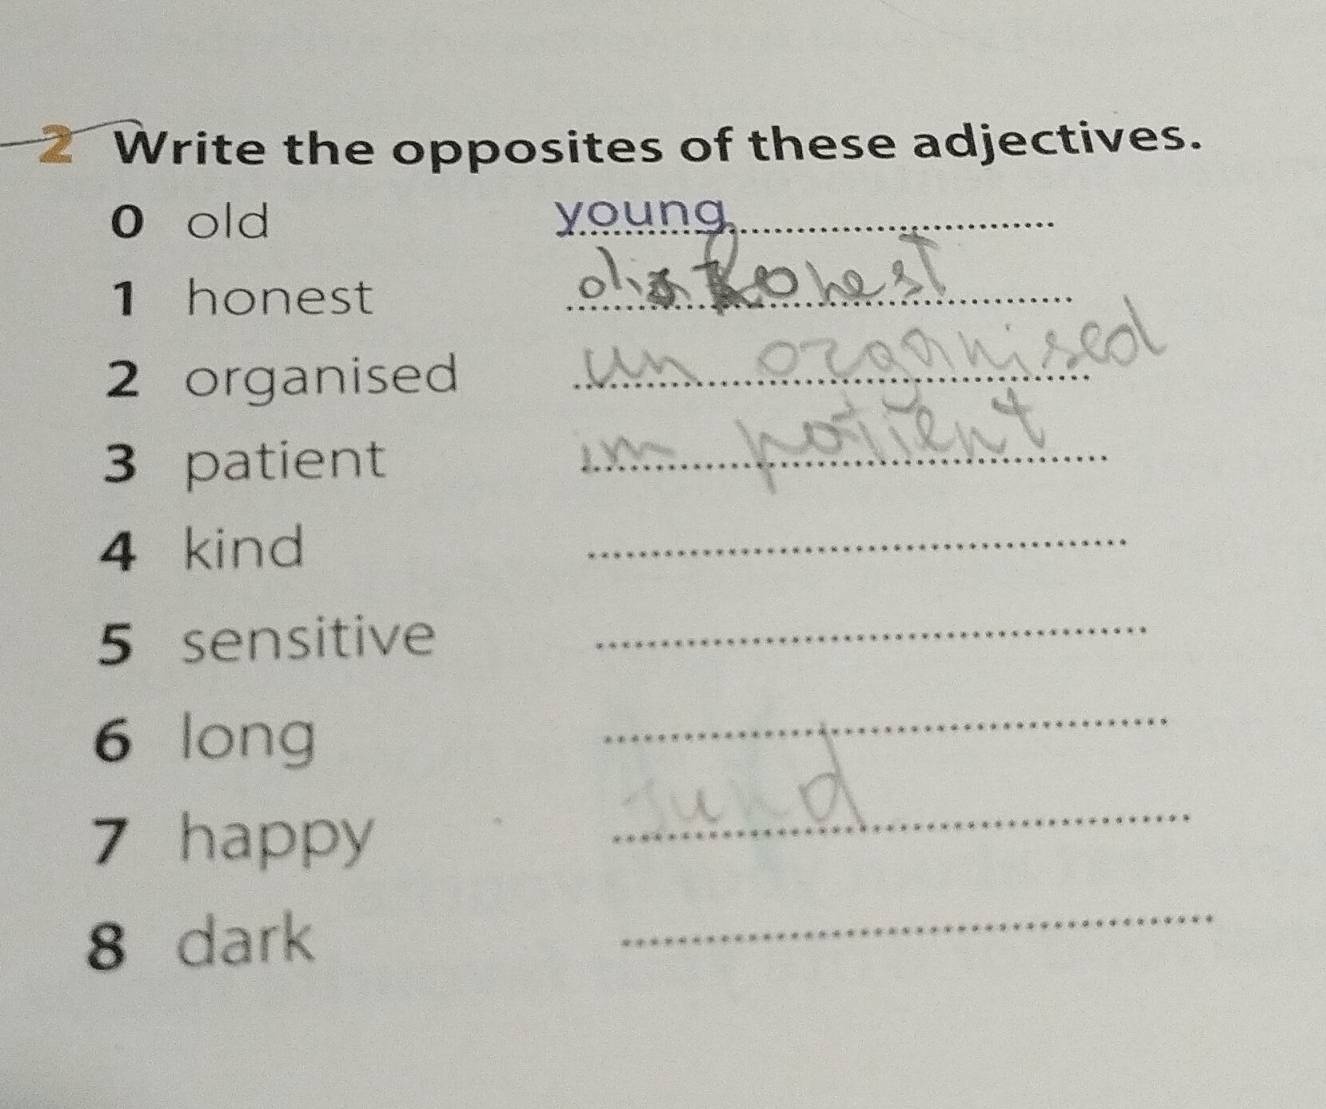 2 Write the opposites of these adjectives.
0 old young
1 honest dishonest
2 organised un organised
3 patient im patient
4 kind
5 sensitive
6 long
7 happy
8 dark